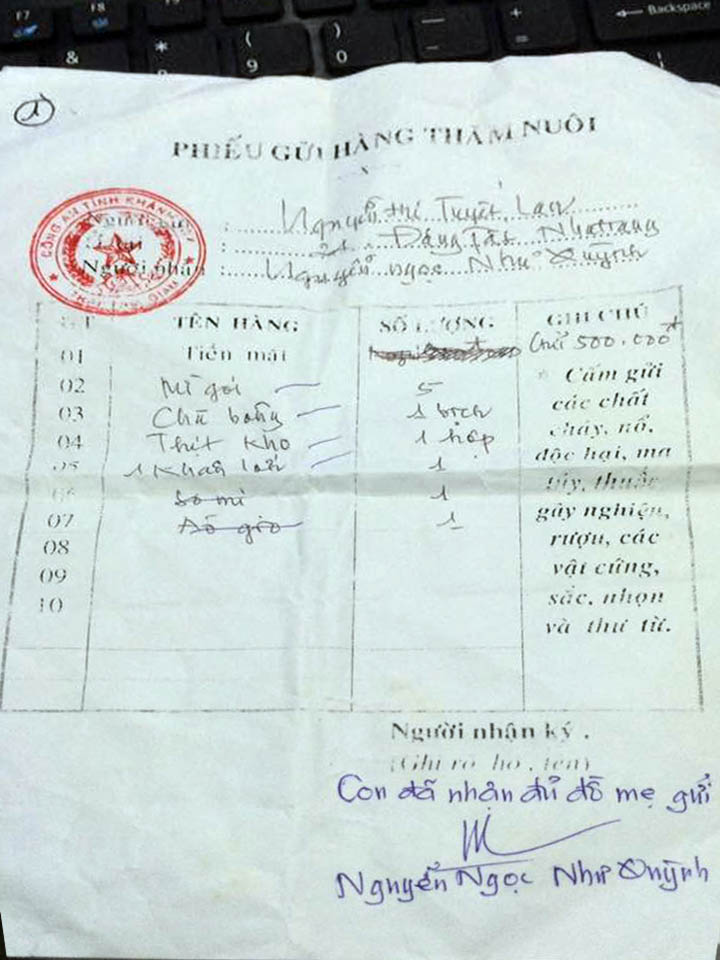 F7
F8
&
*
(
9
)
0
-
+
=
Backspace
1
PHIẾU GỬI HÀNG THĂM NUÔI
CÔNG AN TỈNH KHÁNH HÒA
TRẠI TẠM GIAM
Người gửi : Nguyễn thị Tuyết Lan
: Đặng Tất Nha trang
Người nhận : Nguyễn ngọc Như Quỳnh
STT TÊN HÀNG SỐ LƯỢNG GHI CHÚ
01 Tiền mặt 500.000đ
02 Mì gói 5
03 Chà bông 1 bịch
04 Thịt kho 1 hộp
05 1 Khăn 1
06 1
07 1
08
09
10
Cấm gửi
các chất
cháy, nổ,
độc hại, ma
túy, thuốc
gây nghiện,
rượu, các
vật cứng,
sắc, nhọn
và thư từ.
Người nhận ký .
(Ghi rõ họ, tên)
Con đã nhận đủ đồ mẹ gửi
Nguyễn Ngọc Như Quỳnh